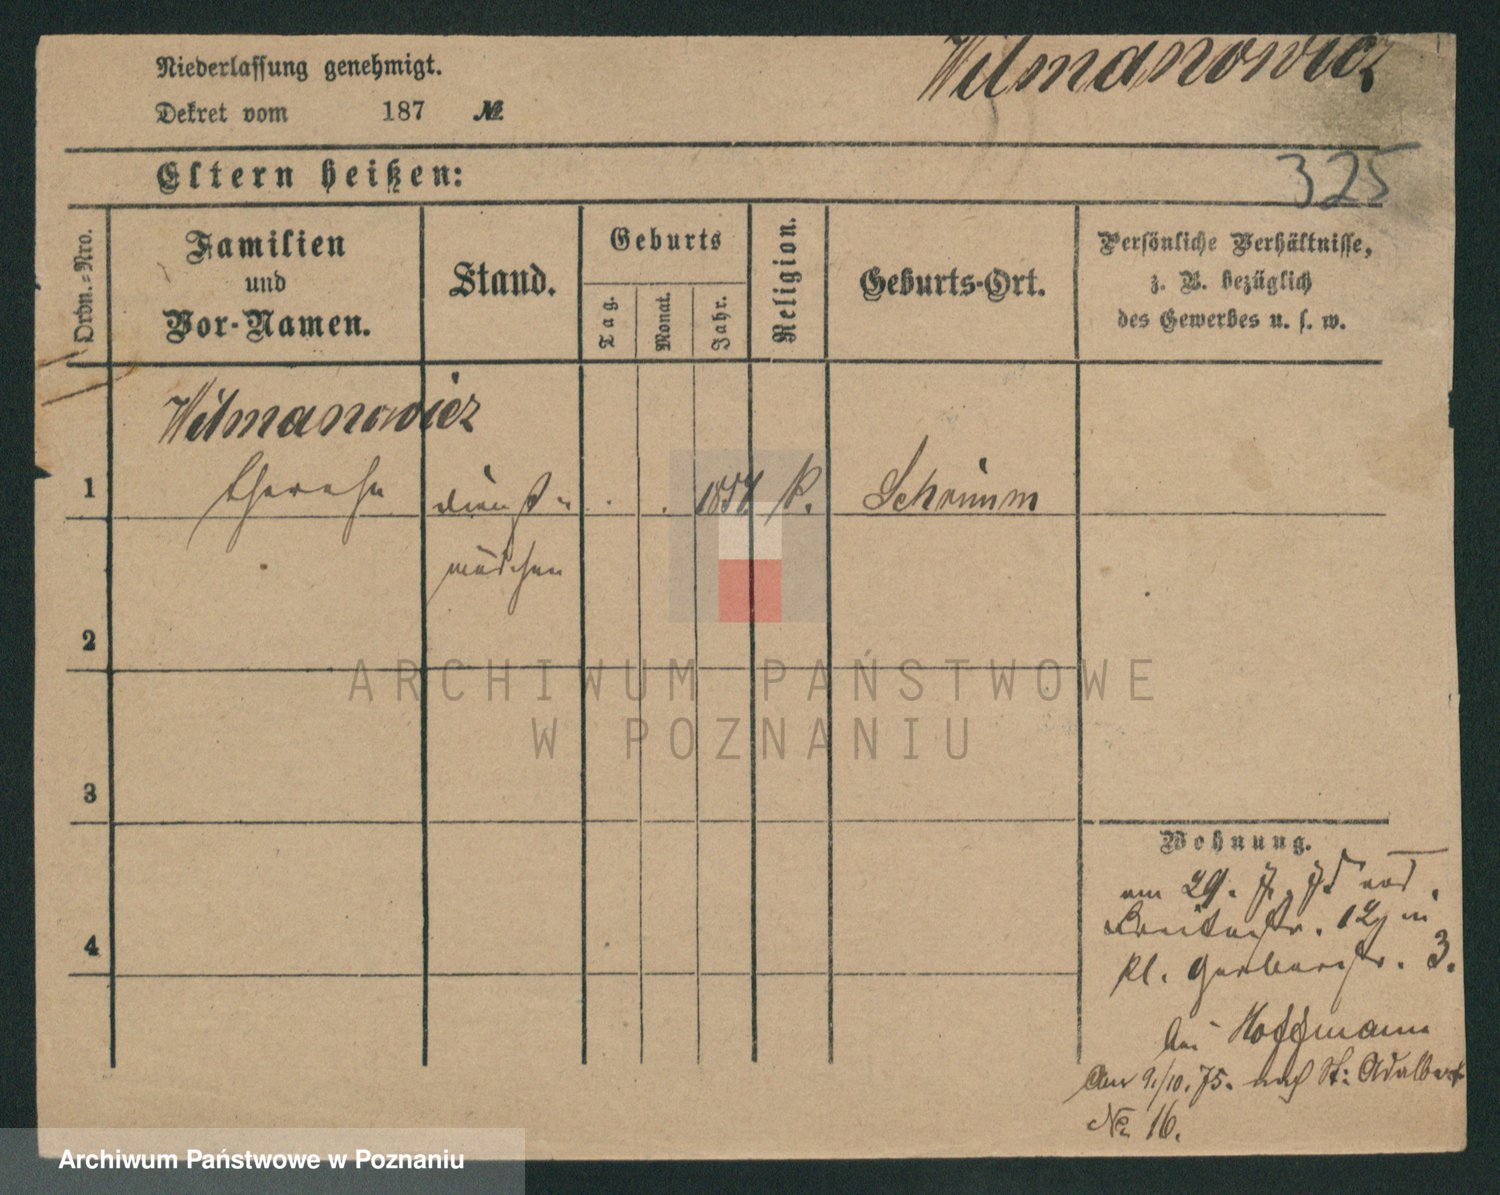 Wilmanowicz
Niederlassung genehmigt.
Dekret vom 187 №
Eltern heißen:
325
Ordn.-Nro.
Familien
und
Vor-Namen.
Stand.
Geburts
Tag.
Monat.
Jahr.
Religion.
Geburts-Ort.
Persönliche Verhältnisse,
z. B. bezüglich
des Gewerbes u. s. w.
Wilmanowicz
1 dienst- 1857 K. Schrimm
mädchen
2
3
4
Wohnung.
am 29. 7. 75 von
Breitestr. 12 in
kl. Gerberstr. 3.
bei Hoffmann
Am 9./10. 75. nach St. Adalbert
No 16.
ARCHIWUM PAŃSTWOWE
W POZNANIU
Archiwum Państwowe w Poznaniu